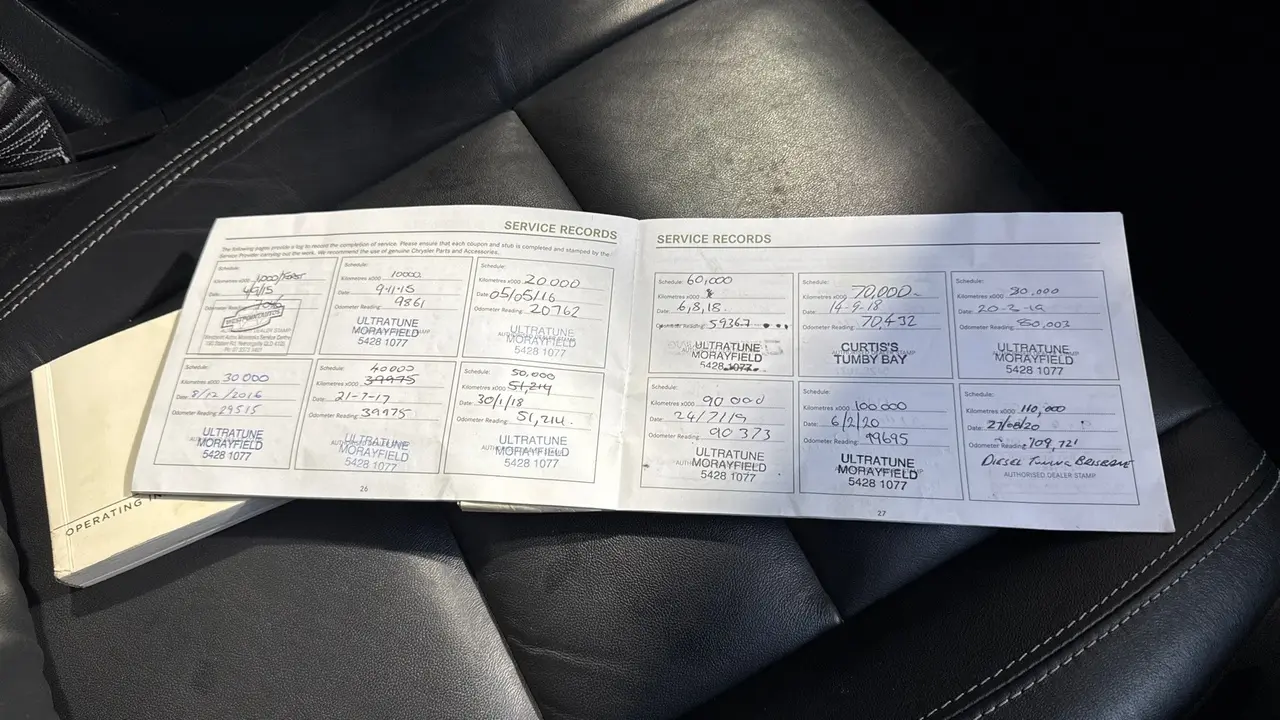 SERVICE RECORDS
The following pages provide a log to record the completion of service. Please ensure that each coupon and stub is completed and stamped by the
Service Provider carrying out the work. We recommend the use of genuine Chrysler Parts and Accessories.
Schedule:
Kilometres x000
Date:
Odometer Reading:
DEALER STAMP
Schedule:
10000
Kilometres x000
Date: 9-11-15
Odometer Reading: 9861
ULTRATUNE
MORAYFIELD
5428 1077
Schedule:
Kilometres x000 20.000
Date: 05/05/16
Odometer Reading: 20762
ULTRATUNE
MORAYFIELD
5428 1077
Schedule:
Kilometres x000 30 000
Date: 8/12/2016
Odometer Reading: 29515
ULTRATUNE
MORAYFIELD
5428 1077
Schedule: 40000
Kilometres x000 39975
Date: 21-7-17
Odometer Reading: 39975
ULTRATUNE
MORAYFIELD
5428 1077
Schedule: 50,000
Kilometres x000 51,214
Date: 30/1/18
Odometer Reading: 51,214.
ULTRATUNE
MORAYFIELD
5428 1077
26
SERVICE RECORDS
Schedule: 60,000
Kilometres x000
Date: 6,8,18.
Odometer Reading: 59367
ULTRATUNE
MORAYFIELD
5428 1077
Schedule:
Kilometres x000 70,000-
Date: 14-9-18
Odometer Reading: 70,432
CURTIS'S
TUMBY BAY
Schedule:
Kilometres x000
Date: 20-3-19
Odometer Reading: 80,003
ULTRATUNE
MORAYFIELD
5428 1077
Schedule:
Kilometres x000 90000
Date: 24/7/19
Odometer Reading: 90373
ULTRATUNE
MORAYFIELD
5428 1077
Schedule:
Kilometres x000 100 000
Date: 6/2/20
Odometer Reading: 99695
ULTRATUNE
MORAYFIELD
5428 1077
Schedule:
Kilometres x000 110,000
Date: 27/08/20
Odometer Reading: 109,721
DIESEL TUNING BRISBANE
AUTHORISED DEALER STAMP
27
OPERATING